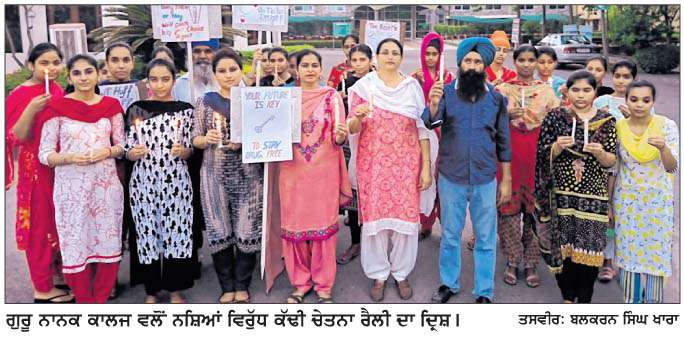 YOUR FUTURE
IS KEY
TO STAY
DRUG FREE
ਗੁਰੂ ਨਾਨਕ ਕਾਲਜ ਵਲੋਂ ਨਸ਼ਿਆਂ ਵਿਰੁੱਧ ਕੱਢੀ ਚੇਤਨਾ ਰੈਲੀ ਦਾ ਦ੍ਰਿਸ਼।
ਤਸਵੀਰ: ਬਲਕਰਨ ਸਿੰਘ ਖਾਰਾ